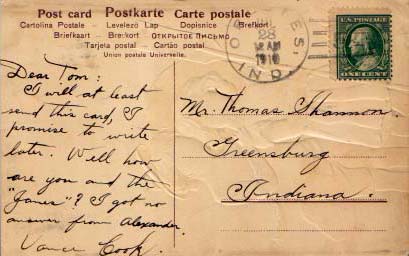 Post card Postkarte Carte postale
Cartolina Postale - Levelező Lap - Dopisnice - Brefkort
Briefkaart - Brevkort - ОТКРЫТОЕ ПИСЬМО
Tarjeta postal - Cartão postal
Union postale Universelle.
28
AM
1910
IND
U.S. POSTAGE
ONE CENT
Dear Tom:
I will at least
send this card, I
promise to write
later. Well how
are you and the
"Janes"? I got no
answer from Alexander.
Vance Cook.
Mr. Thomas Shannon
Greensburg
Indiana.